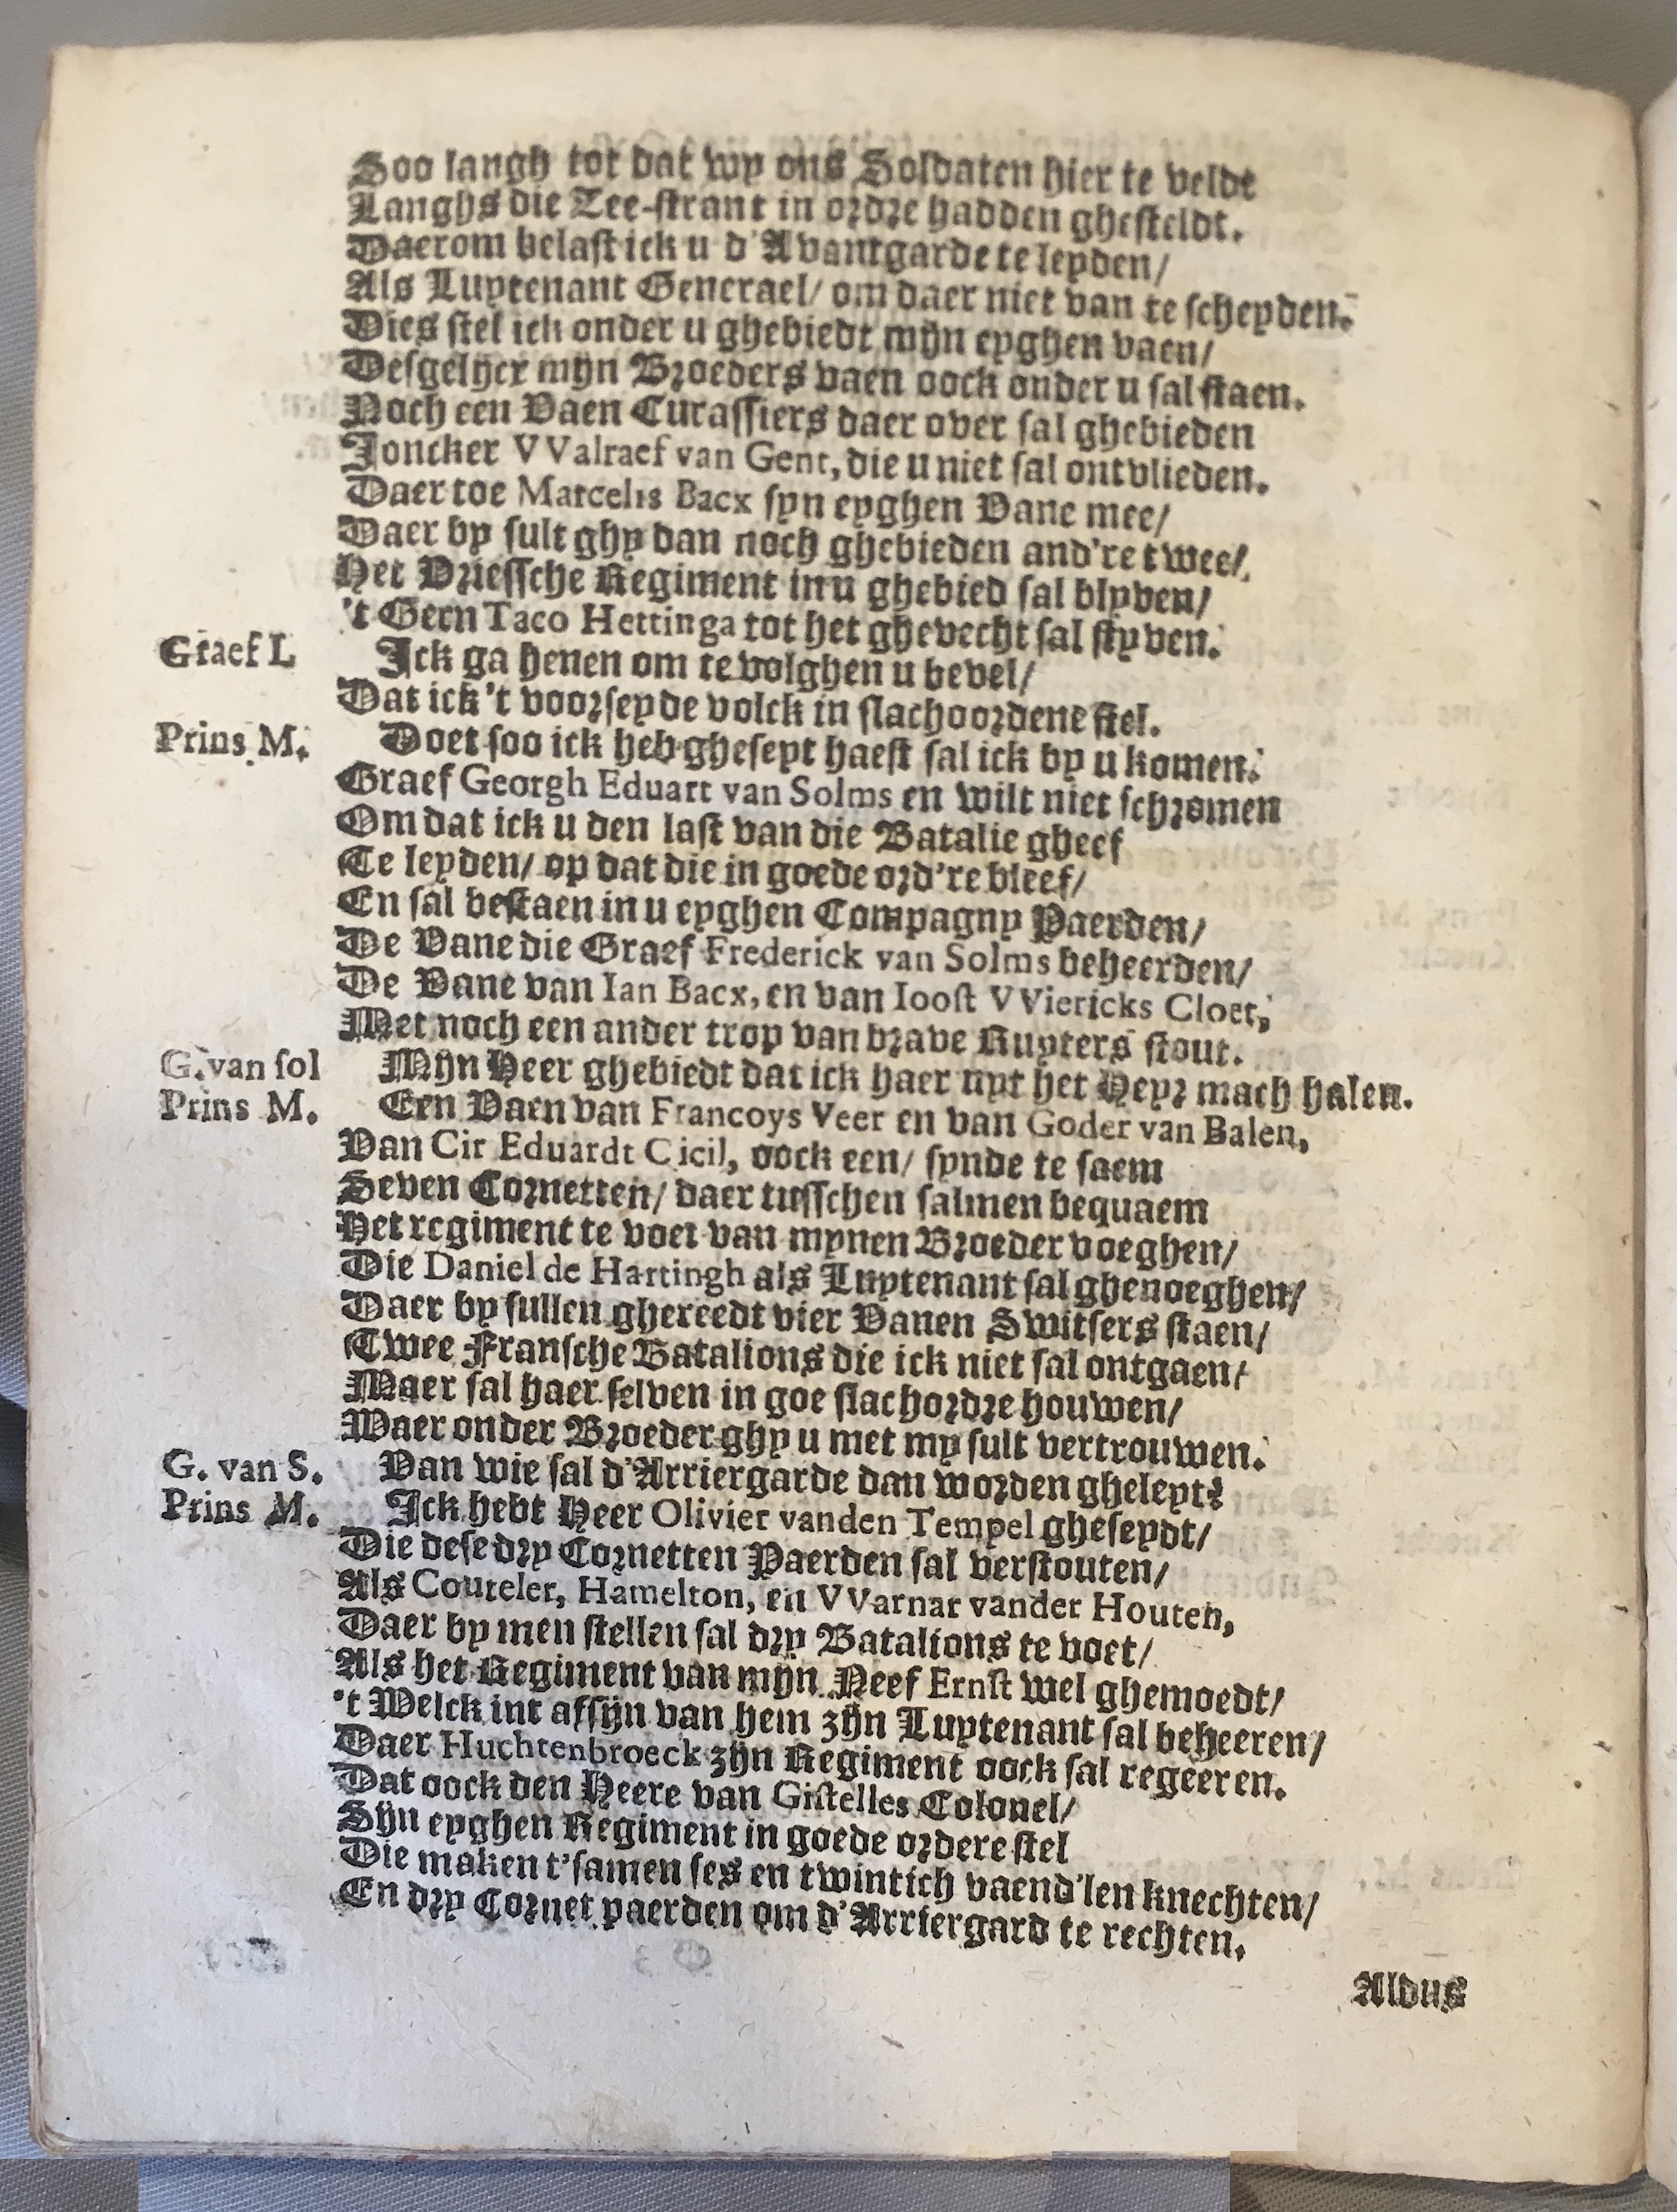 Soo langh tot dat wy ons Soldaten hier te veldt
Langhs die Zee-strant in ordre hadden ghesteldt.
Daerom belast ick u d'Avantgarde te leyden/
Als Luytenant Generael/ om daer niet van te scheyden.
Dies stel ick onder u ghebiedt mijn eyghen vaen/
Desgelijcx mijn Broeders vaen oock onder u sal staen.
Noch een Vaen Curassiers daer over sal ghebieden
Joncker VValraef van Gent, die u niet sal ontvlieden.
Daer toe Marcelis Bacx syn eyghen Vane mee/
Daer by sult ghy dan noch ghebieden and're twee/
Het Vriessche Regiment in u ghebied sal blyven/
't Geen Taco Hettinga tot het ghevecht sal styven.
Graef L Ick ga henen om te volghen u bevel/
Dat ick 't voorseyde volck in slachoordene stel.
Prins M. Doet soo ick heb gheseyt haest sal ick by u komen.
Graef Georgh Eduart van Solms en wilt niet schromen
Om dat ick u den last van die Batalie gheef
Te leyden/ op dat die in goede ord're bleef/
En sal bestaen in u eyghen Compagny Paerden/
De Vane die Graef Frederick van Solms beheerden/
De Vane van Ian Bacx, en van Ioost VViericks Cloet,
Met noch een ander trop van brave Ruyters stout.
G. van sol Mijn Heer ghebiedt dat ick haer uyt het Heyr mach halen.
Prins M. Een Vaen van Francoys Veer en van Goder van Balen,
Van Cir Eduardt Cicil, oock een/ synde te saem
Seven Cornetten/ daer tusschen salmen bequaem
Het regiment te voet van mynen Broeder voeghen/
Die Daniel de Hartingh als Luytenant sal ghenoeghen/
Daer by sullen ghereedt vier Vanen Switsers staen/
Twee Fransche Batalions die ick niet sal ontgaen/
Maer sal haer selven in goe slachordre houwen/
Waer onder Broeder ghy u met my sult vertrouwen.
G. van S. Van wie sal d'Arriergarde dan worden gheleyt?
Prins M. Ick hebt Heer Olivier vanden Tempel gheseydt/
Die dese dry Cornetten Paerden sal verstouten/
Als Couteler, Hamelton, en VVarnar vander Houten,
Daer by men stellen sal dry Batalions te voet/
Als het Regiment van mijn Neef Ernst wel ghemoedt/
't Welck int afsijn van hem zijn Luytenant sal beheeren/
Daer Huchtenbroeck zijn Regiment oock sal regeeren.
Dat oock den Heere van Gistelles Colonel/
Sijn eyghen Regiment in goede ordere stel
Die maken t'samen ses en twintich vaend'len knechten/
En dry Cornet paerden om d'Arriergard te rechten.
Aldus